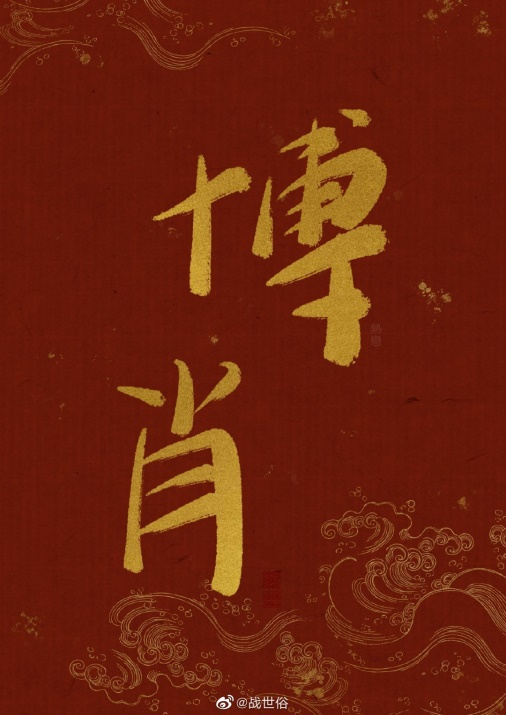 博
肖
@战世俗